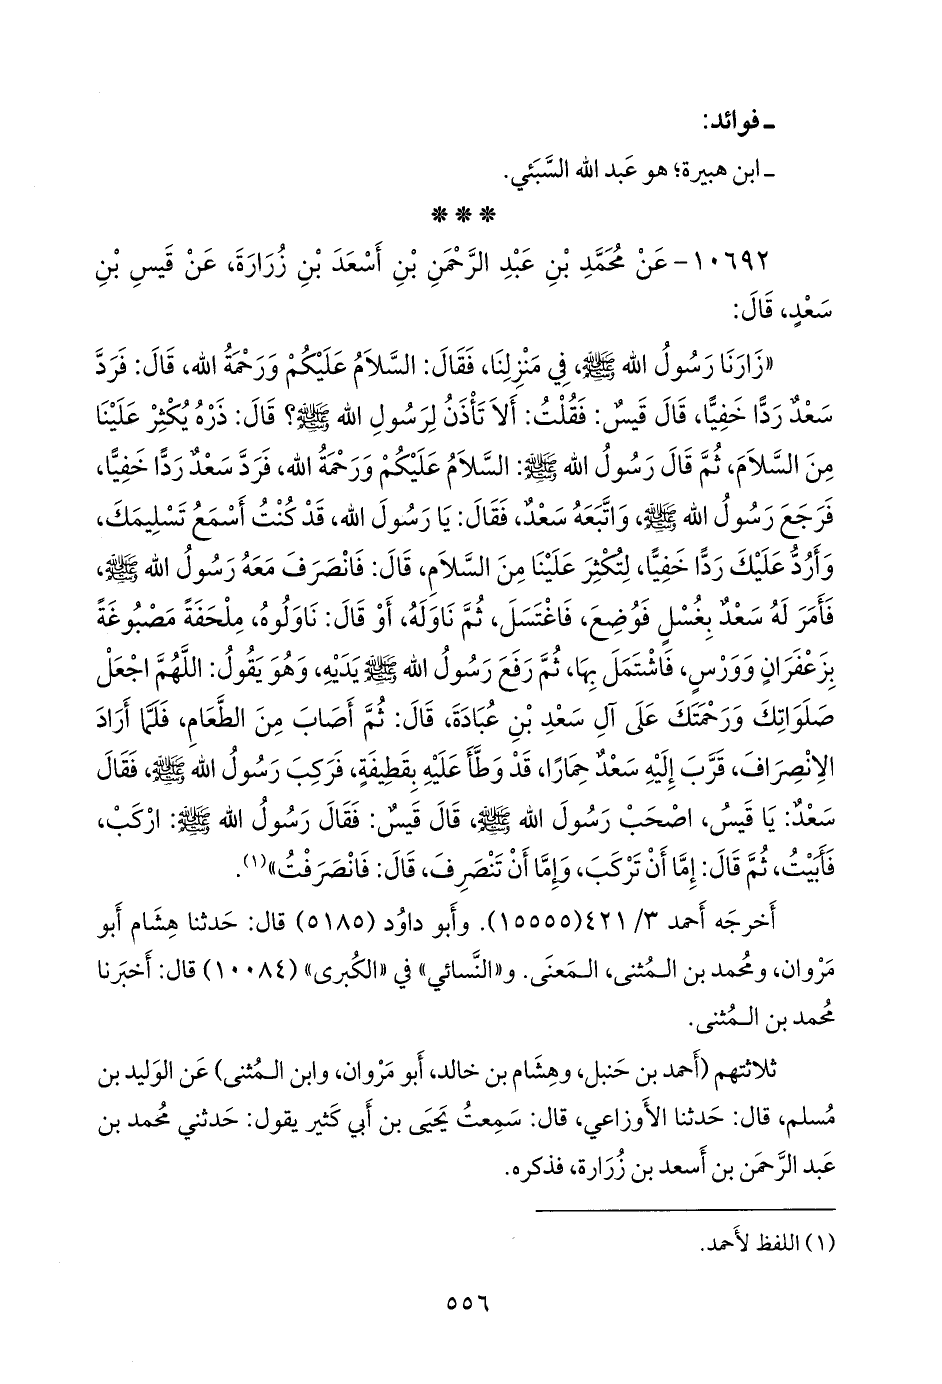 ـ فوائد:
ـ ابن هبيرة؛ هو عَبد الله السَّبَئي.
* * *
١٠٦٩٢- عَنْ مُحَمَّدِ بْنِ عَبْدِ الرَّحْمَنِ بْنِ أَسْعَدَ بْنِ زُرَارَةَ، عَنْ قَيسِ بْنِ
سَعْدٍ، قَالَ:
«زَارَنَا رَسُولُ الله ﷺ، فِي مَنْزِلِنَا، فَقَالَ: السَّلَامُ عَلَيْكُمْ وَرَحْمَةُ الله، قَالَ: فَرَدَّ
سَعْدٌ رَدًّا خَفِيًّا، قَالَ قَيسٌ: فَقُلْتُ: أَلاَ تَأْذَنُ لِرَسُولِ الله ﷺ؟ قَالَ: ذَرْهُ يُكْثِرْ عَلَيْنَا
مِنَ السَّلاَمِ، ثُمَّ قَالَ رَسُولُ الله ﷺ: السَّلاَمُ عَلَيْكُمْ وَرَحْمَةُ الله، فَرَدَّ سَعْدٌ رَدًّا خَفِيًّا،
فَرَجَعَ رَسُولُ الله ﷺ، وَاتَّبَعَهُ سَعْدٌ، فَقَالَ: يَا رَسُولَ الله، قَدْ كُنْتُ أَسْمَعُ تَسْلِيمَكَ،
وَأَرُدُّ عَلَيْكَ رَدًّا خَفِيًّا، لِتُكْثِرَ عَلَيْنَا مِنَ السَّلاَمِ، قَالَ: فَانْصَرَفَ مَعَهُ رَسُولُ الله ﷺ،
فَأَمَرَ لَهُ سَعْدٌ بِغُسْلٍ فَوُضِعَ، فَاغْتَسَلَ، ثُمَّ نَاوَلَهُ، أَوْ قَالَ: نَاوَلُوهُ، مِلْحَفَةً مَصْبُوغَةً
بِزَعْفَرَانٍ وَوَرْسٍ، فَاشْتَمَلَ بِهَا، ثُمَّ رَفَعَ رَسُولُ الله ﷺ يَدَيْهِ، وَهُوَ يَقُولُ: اللَّهُمَّ اجْعَلْ
صَلَوَاتِكَ وَرَحْمَتَكَ عَلَى آلِ سَعْدِ بْنِ عُبَادَةَ، قَالَ: ثُمَّ أَصَابَ مِنَ الطَّعَامِ، فَلَمَّا أَرَادَ
الاِنْصِرَافَ، قَرَّبَ إِلَيْهِ سَعْدٌ حِمَارًا، قَدْ وَطَّأَ عَلَيْهِ بِقَطِيفَةٍ، فَرَكِبَ رَسُولُ الله ﷺ، فَقَالَ
سَعْدٌ: يَا قَيسُ، اصْحَبْ رَسُولَ الله ﷺ، قَالَ قَيسٌ: فَقَالَ رَسُولُ الله ﷺ: ارْكَبْ،
فَأَبَيْتُ، ثُمَّ قَالَ: إِمَّا أَنْ تَرْكَبَ، وَإِمَّا أَنْ تَنْصَرِفَ، قَالَ: فَانْصَرَفْتُ»(١).
أَخرجَه أَحمد ٣/ ٤٢١(١٥٥٥٥). وأَبو داوُد (٥١٨٥) قال: حَدثنا هِشَام أَبو
مَرْوان، ومُحمد بن الـمُثنى، الـمَعنَى. و«النَّسائي» في «الكُبرى» (١٠٠٨٤) قال: أَخبَرنا
مُحمد بن الـمُثنى.
ثلاثتهم (أَحمد بن حَنبل، وهِشَام بن خالد، أَبو مَرْوان، وابن الـمُثنى) عَن الوَليد بن
مُسلم، قال: حَدثنا الأَوزاعي، قال: سَمِعتُ يَحيَى بن أَبي كَثير يقول: حَدثني مُحمد بن
عَبد الرَّحمَن بن أَسعد بن زُرَارة، فذكره.
(١) اللفظ لأَحمد.
٥٥٦